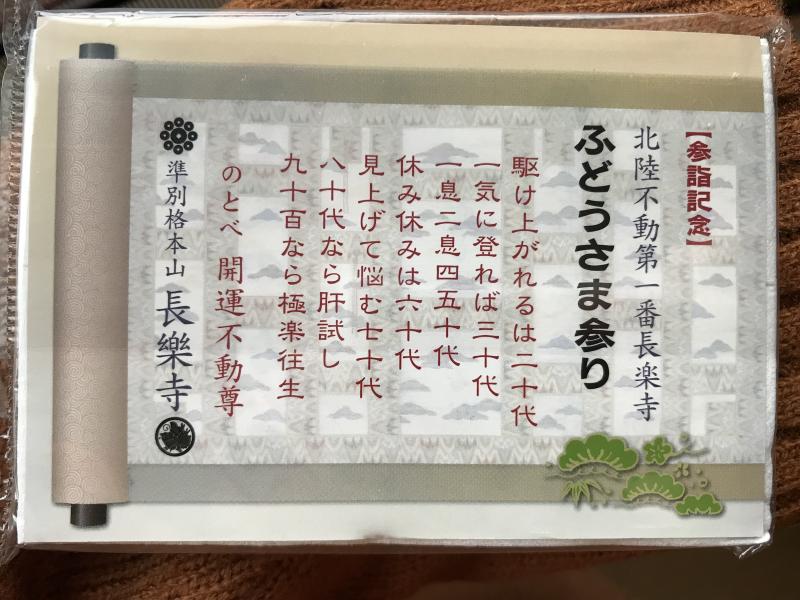 【参詣記念】
北陸不動第一番長楽寺
ふどうさま参り
駆け上がれるは二十代
一気に登れば三十代
一息二息四五十代
休み休みは六十代
見上げて悩む七十代
八十代なら肝試し
九十百なら極楽往生
のとべ 開運不動尊
準別格本山 長樂寺